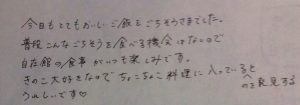 今日もとてもおいしいご飯をごちそうさまでした。
普段こんなごちそうを食べる機会はないので
自在館の食事がいつも楽しみです。
きのこ大好きなのでちょこちょこ料理に入っていると
のを発見すると
うれしいです♡